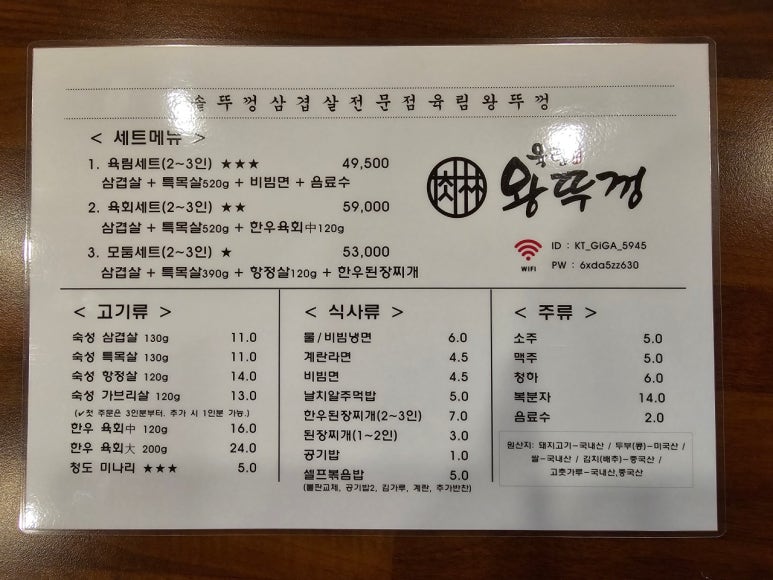 솥뚜껑삼겹살전문점육림왕뚜껑
< 세트메뉴 >
1. 육림세트(2~3인) ★★★ 49,500
삼겹살 + 특목살520g + 비빔면 + 음료수
2. 육회세트(2~3인) ★★ 59,000
삼겹살 + 특목살520g + 한우육회中120g
3. 모둠세트(2~3인) ★ 53,000
삼겹살 + 특목살390g + 항정살120g + 한우된장찌개
육림
왕뚜껑
WIFI
ID : KT_GiGA_5945
PW : 6xda5zz630
< 고기류 >
숙성 삼겹살 130g 11.0
숙성 특목살 130g 11.0
숙성 항정살 120g 14.0
숙성 가브리살 120g 13.0
(✔첫 주문은 3인분부터. 추가 시 1인분 가능.)
한우 육회中 120g 16.0
한우 육회大 200g 24.0
청도 미나리 ★★★ 5.0
< 식사류 >
물/비빔냉면 6.0
계란라면 4.5
비빔면 4.5
날치알주먹밥 5.0
한우된장찌개(2~3인) 7.0
된장찌개(1~2인) 3.0
공기밥 1.0
셀프볶음밥 5.0
(불판교체, 공기밥2, 김가루, 계란, 추가반찬)
< 주류 >
소주 5.0
맥주 5.0
청하 6.0
복분자 14.0
음료수 2.0
원산지: 돼지고기-국내산 / 두부(콩)-미국산 /
쌀-국내산 / 김치(배추)-중국산 /
고춧가루-국내산,중국산